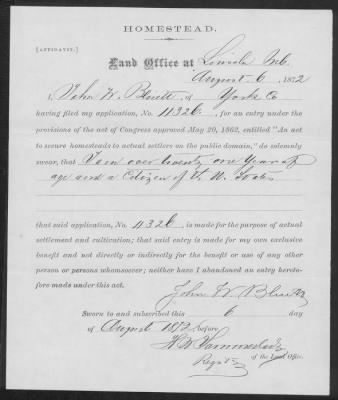 HOMESTEAD.
[AFFIDAVIT.]
Land Office at Lincoln Neb
August 6 1872
I, John W. of York Co
having filed my application, No. 11326, for an entry under the
provisions of the act of Congress approved May 20, 1862, entitled "An act
to secure homesteads to actual settlers on the public domain," do solemnly
swear, that I am over twenty one Year of
age and a Citizen of U. States
that said application, No. 11326, is made for the purpose of actual
settlement and cultivation; that said entry is made for my own exclusive
benefit and not directly or indirectly for the benefit or use of any other
person or persons whomsoever; neither have I abandoned an entry hereto-
fore made under this act.
John W
Sworn to and subscribed this 6 day
of August 1872 before
Register of the Land Office.